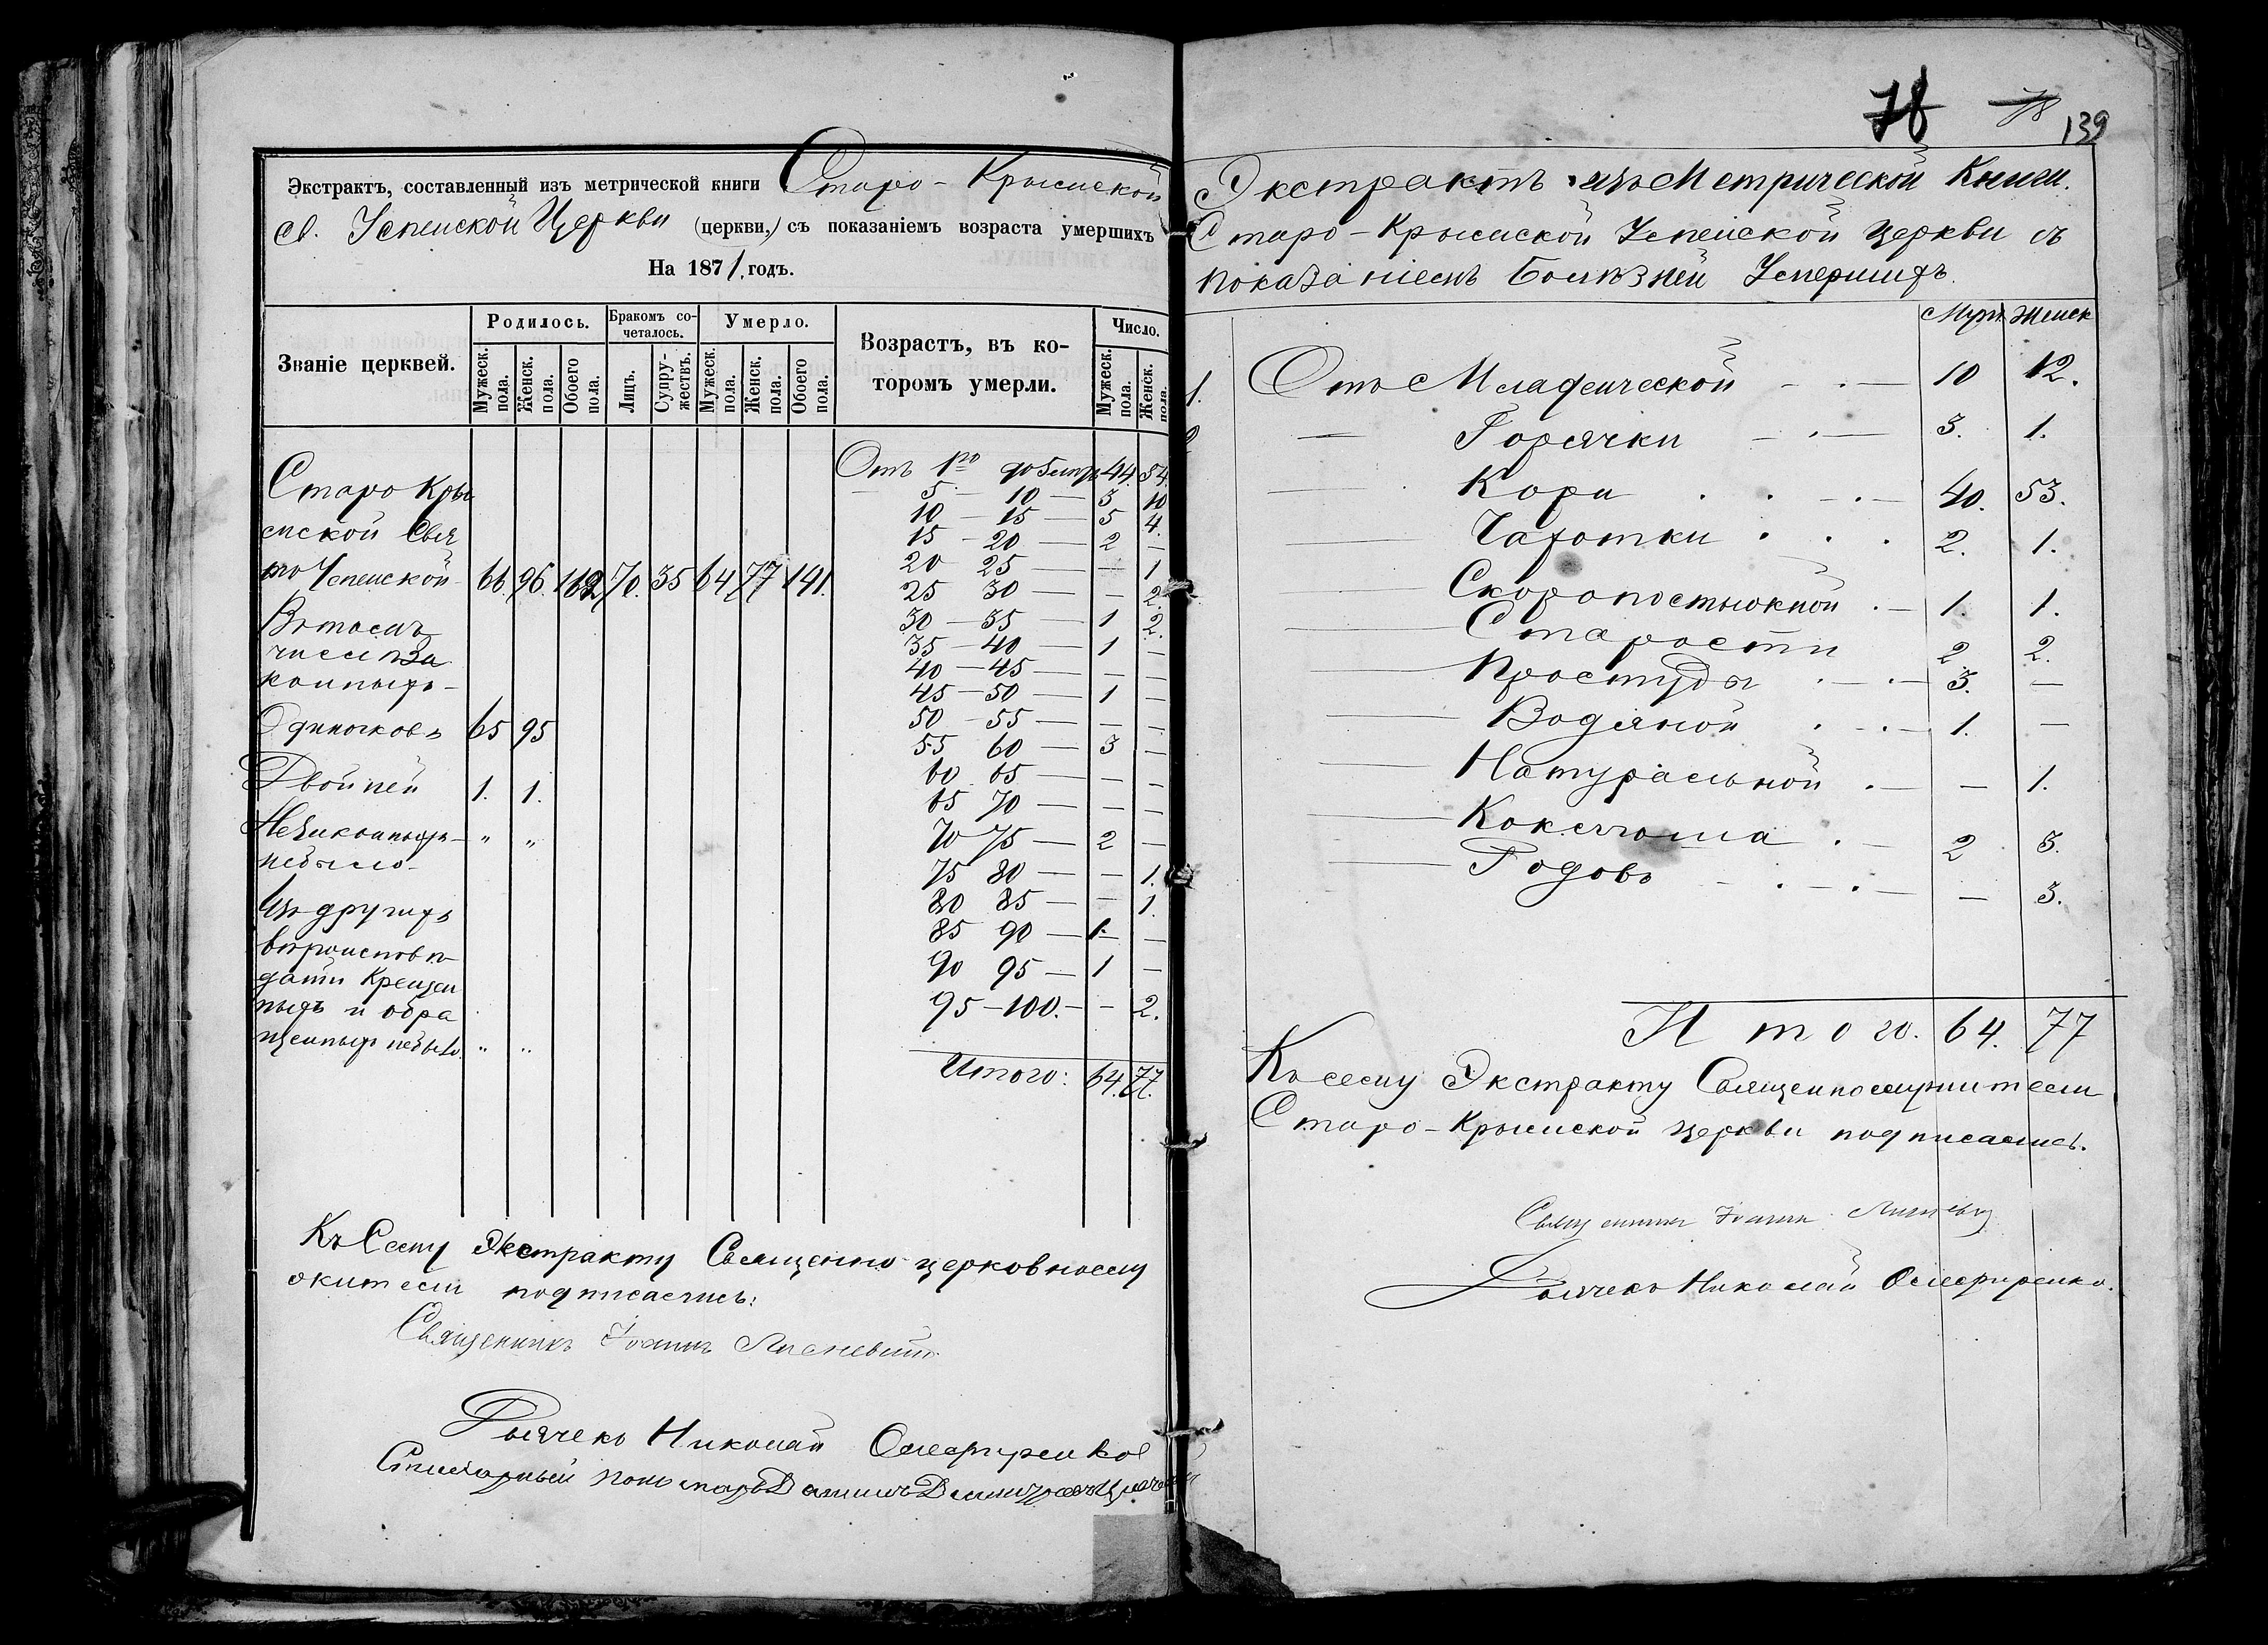 Экстрактъ, составленный изъ метрической книги Старо-Крымской
Св. Успенской Церкви (церкви,) съ показаніемъ возраста умершихъ
На 1871 годъ.
Званіе церквей. Родилось. Бракомъ со- четалось. Умерло. Возрастъ, въ ко- торомъ умерли. Число.
Мужеск. пола. Женск. пола. Обоего пола. Лицъ. Супру- жествъ. Мужеск. пола. Женск. пола. Обоего пола. Мужеск. пола. Женск. пола.
Старо Кры
мской Свя
то Успенской 66. 96. 162 70. 35 64 77 141.
Въ томъ
числѣ За
конныхъ
Одиночковъ 65 95
Двойней 1. 1.
Незаконныхъ „ „
небыло
Изъ другихъ
вѣроисповѣ
дани Крещен
ныхъ и обра
щенныхъ небыло. „ „
Отъ 1го до 5 лѣтъ 44. 54.
— 5 — 10 — 3 10
10 — 15 — 5 4.
15 — 20 — 2 —
20 25 — — 1
25 30 — — 2.
30 — 35 — 1 2.
35 — 40 — 1 —
40 — 45 — — —
45 — 50 — 1 —
50 — 55 — — —
55 60 — 3 —
60 65 — — —
65 70 — — —
70 75 — 2 —
75 80 — — 1.
80 85 — — 1.
85 90 — 1. —
90 95 — 1 —
95 — 100. — — 2.
Итого: 64. 77.
Къ Сему Экстракту Священно-церковнослу
жители подписались:
Священникъ Іоаннъ
Дьячекъ Николай
78 78 139
Экстрактъ изъ Метрической Книги.
Старо-Крымской Успенской Церкви съ
показаніемъ Болѣзней Умершихъ.
Муж. Женск
1. Отъ Младенческой — . — 10 12.
2 — Горячки — . — 3. 1.
— Кори . . — . — 40. 53.
— Чахотки . . . 2. 1.
— Скоропостижной . — 1. 1.
— Старости 2 2.
— Простуды . — . — 3. —
— Водяной . — . — 1. —
— Натуральной . — — 1.
— Коклюша . — 2 3.
— Родовъ — . — . — — 3.
Итого. 64. 77
Къ сему Экстракту Священнослужители
Старо-Крымской церкви подписались.
Священникъ Іоаннъ
Дьячекъ Николай